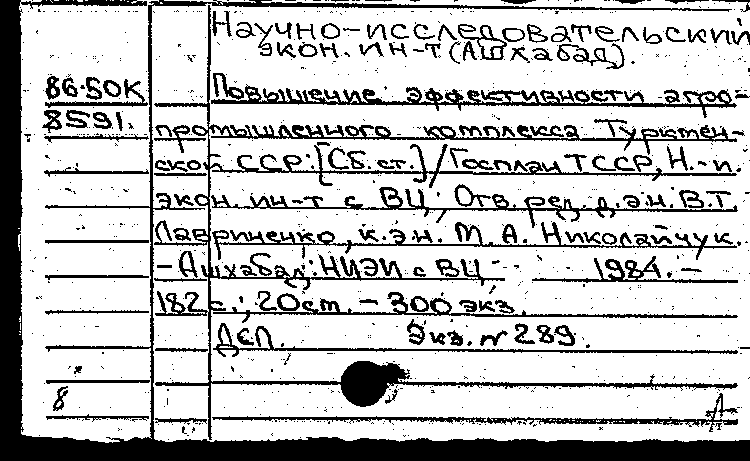 Научно-исследовательский
экон. ин-т (Ашхабад).
86-50К Повышение эффективности агро-
8591. промышленного комплекса Туркмен-
ской ССР: [Сб. ст.] / Госплан ТССР, Н.-и.
экон. ин-т с ВЦ; Отв. ред. д.э.н. В.Т.
Лавриненко, к.э.н. М. А. Николайчук.
- Ашхабад: НИЭИ с ВЦ, 1984. -
182 с.; 20 см. - 300 экз.
Деп. Экз. № 289.
8